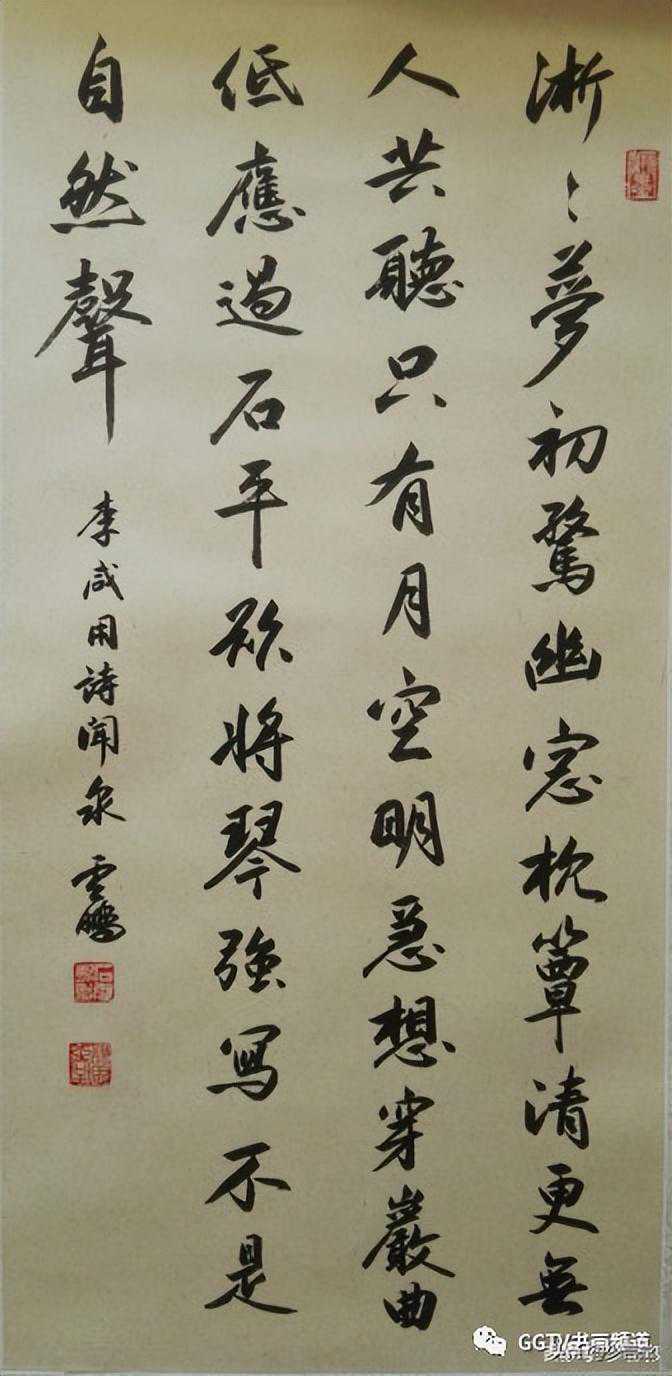 淅〻夢初驚幽窓枕簟清更無
人共聽只有月空明急想穿巖曲
低應過石平欲將琴強寫不是
自然聲
李咸用詩聞泉雲鵬
GGTV书画频道